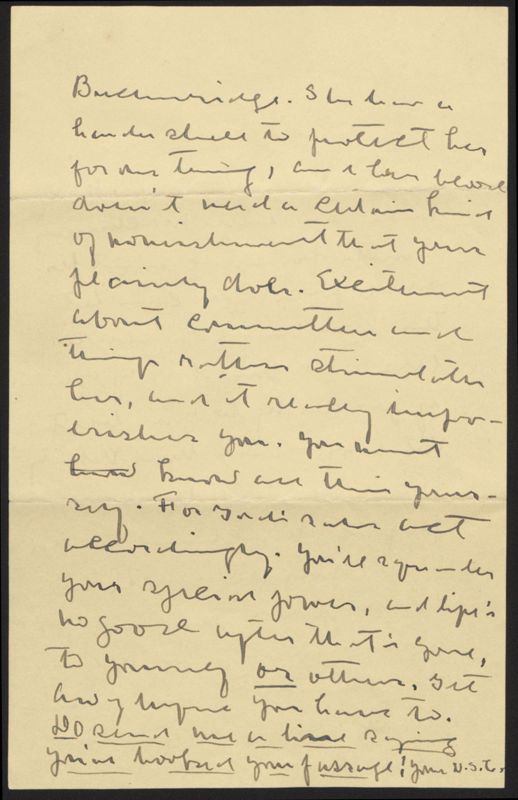 Breckinridge. She has a
harder shell to protect her
for one thing, and her blood
doesn't need a certain kind
of nourishment that yours
plainly does. Excitement
about committees and
things rather stimulates
her, and it really impo-
verishes you. You must
know all this your-
self. For God's sake act
accordingly. You'll squander
your special power, and life's
no good after that's gone,
to yourself or others. Get
away if you have to.
Do send me a line saying
you've booked your passage! Your